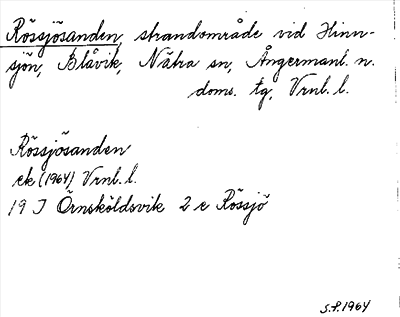 Rössjösanden, strandområde vid Hinn-
sjön, Blåvik, Nätra sn, Ångermanl. n.
doms. tg, Vrnl. l.
Rössjösanden
ek (1964) Vrnl. l.
19 J Örnsköldsvik 2 e Rössjö
S.F. 1964